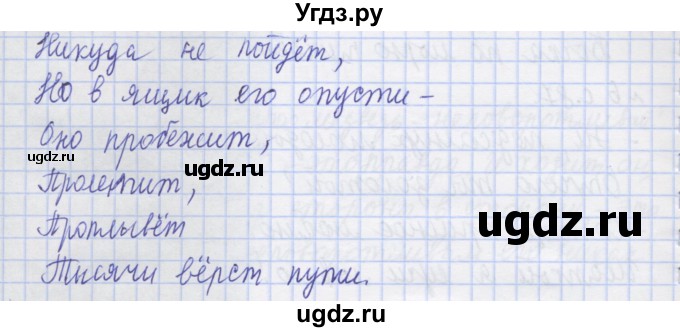 Угдз.ру
Никуда не пойдёт,
Но в ящик его опусти –
Оно пробежит,
ugdz.ru
ugdz.ru
Пролетит,
ugdz.ru
ugdz.ru
Проплывёт
Тысячи вёрст пути.
ugdz.ru